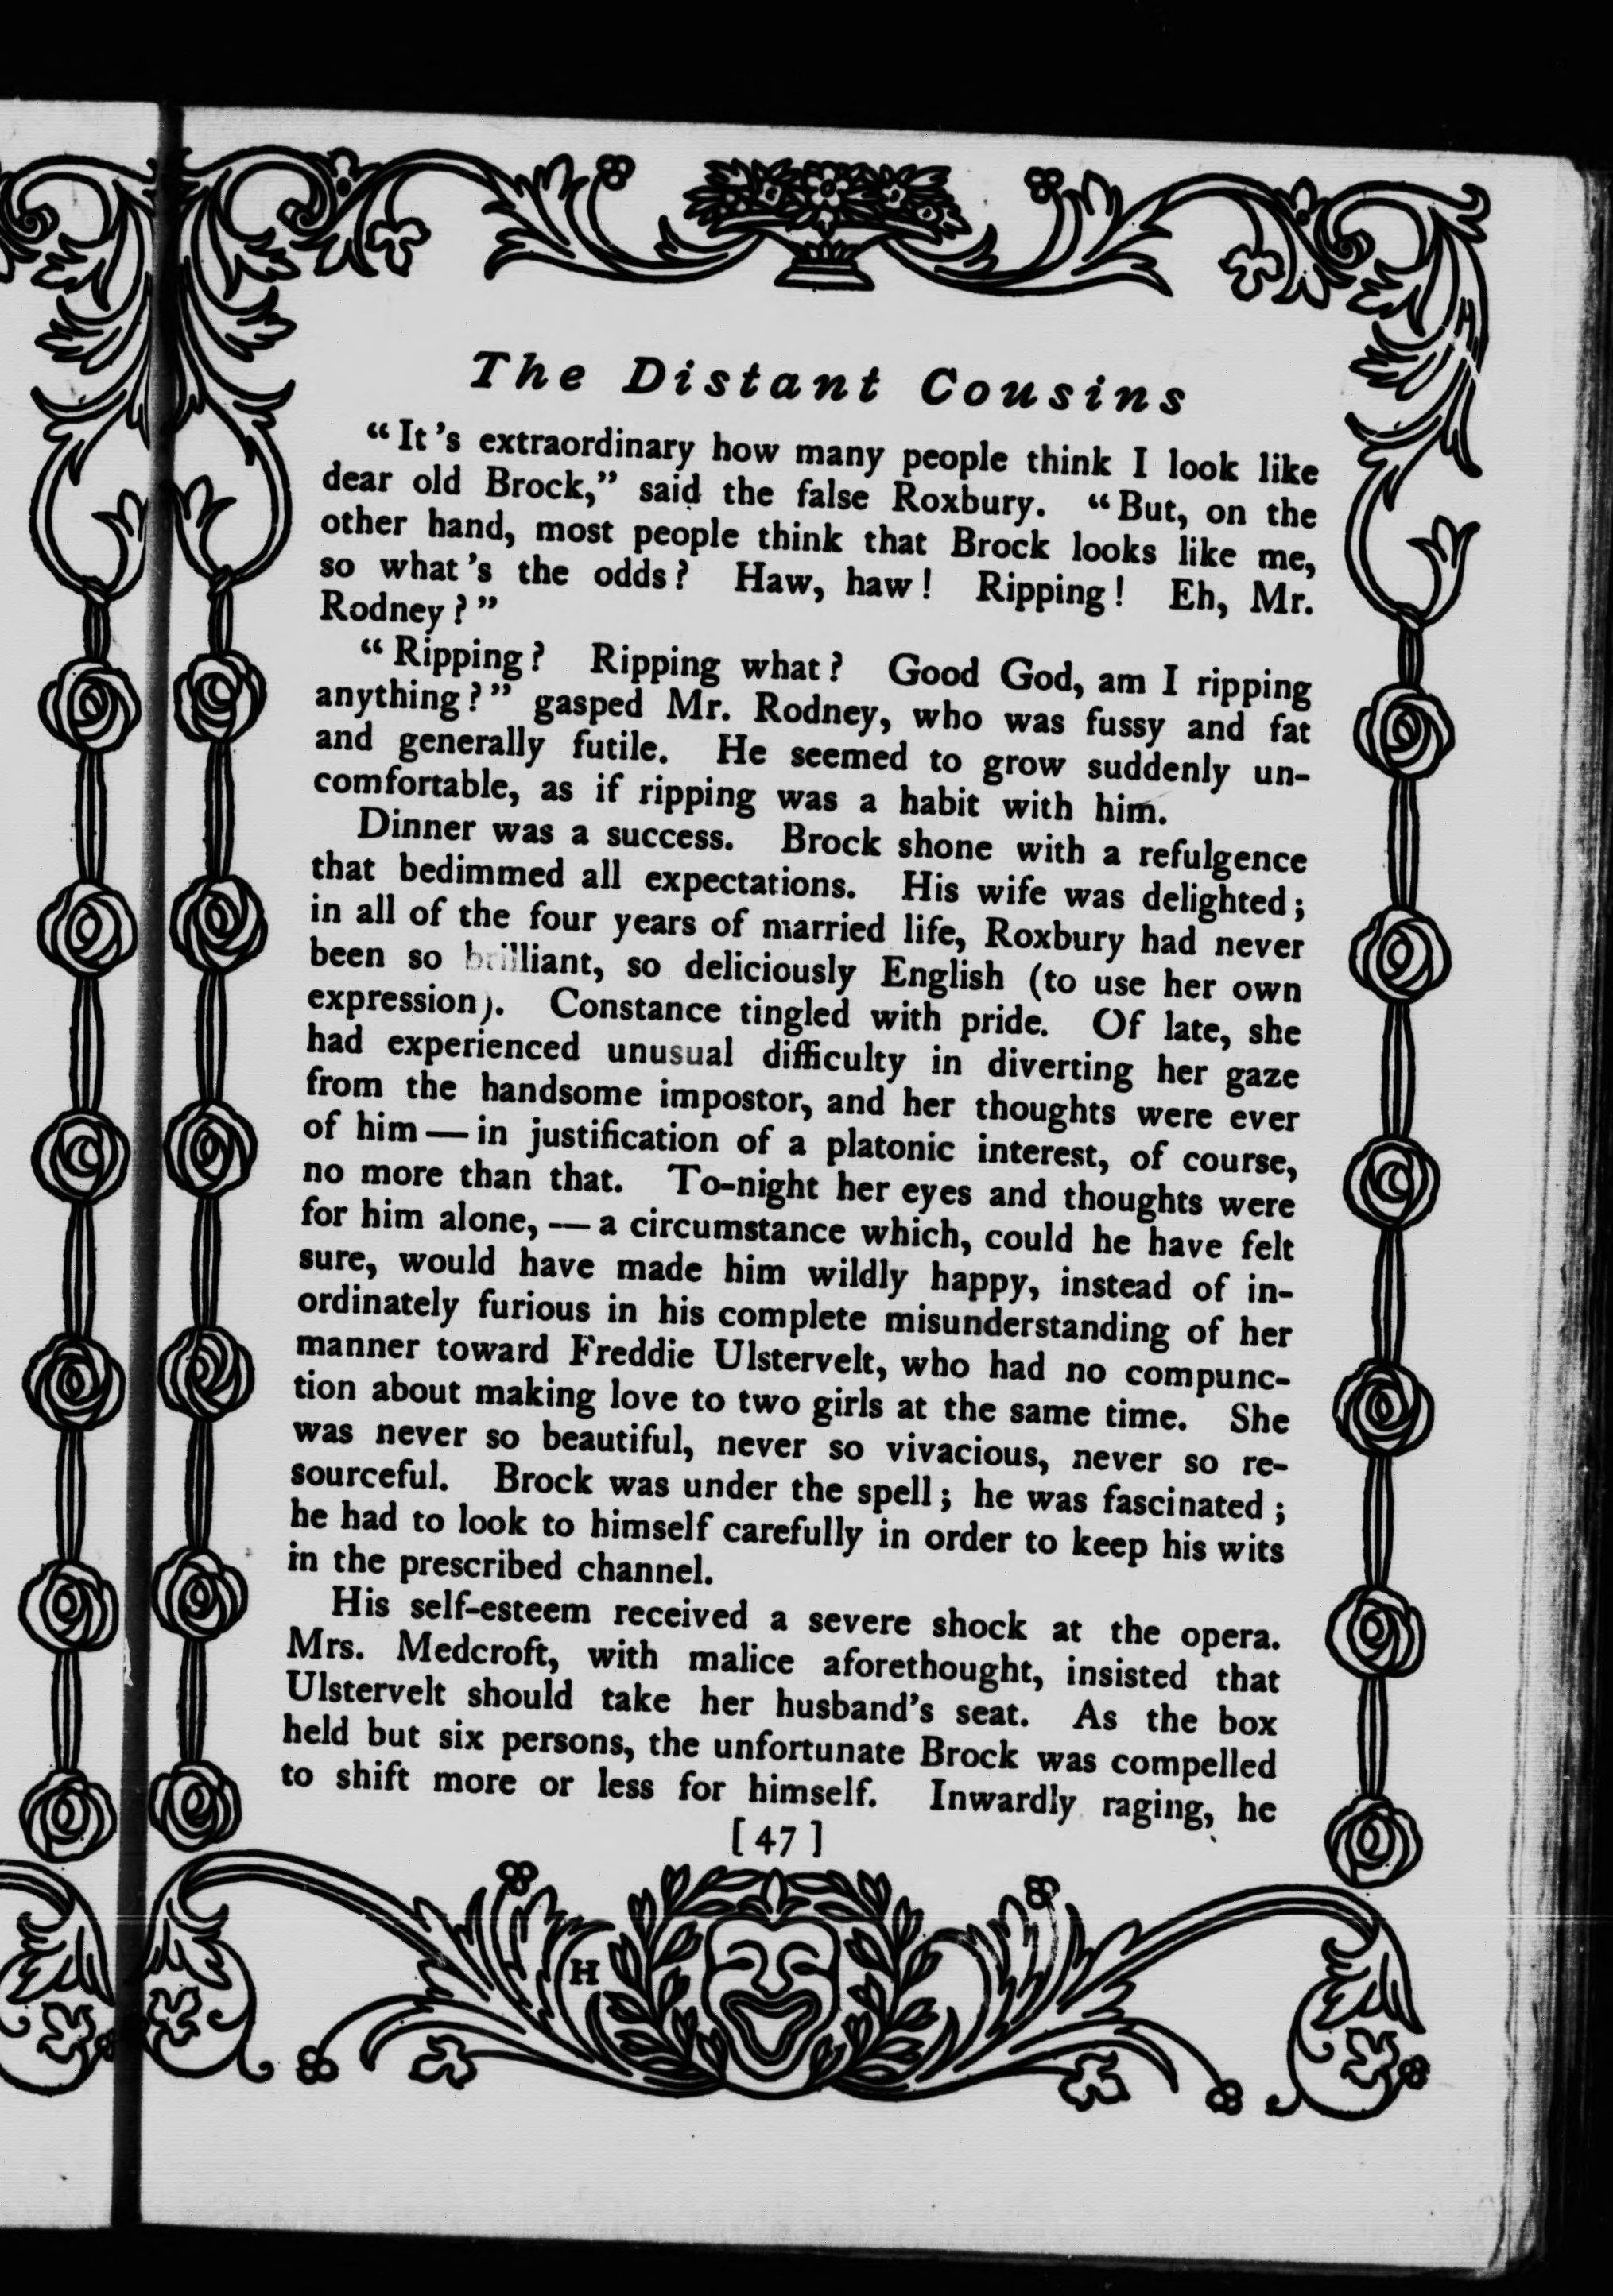 The Distant Cousins
“It's extraordinary how many people think I look like
dear old Brock,” said the false Roxbury. “But, on the
other hand, most people think that Brock looks like me,
so what's the odds? Haw, haw! Ripping! Eh, Mr.
Rodney?”
“Ripping? Ripping what? Good God, am I ripping
anything?” gasped Mr. Rodney, who was fussy and fat
and generally futile. He seemed to grow suddenly un-
comfortable, as if ripping was a habit with him.
Dinner was a success. Brock shone with a refulgence
that bedimmed all expectations. His wife was delighted;
in all of the four years of married life, Roxbury had never
been so brilliant, so deliciously English (to use her own
expression). Constance tingled with pride. Of late, she
had experienced unusual difficulty in diverting her gaze
from the handsome impostor, and her thoughts were ever
of him — in justification of a platonic interest, of course,
no more than that. To-night her eyes and thoughts were
for him alone, — a circumstance which, could he have felt
sure, would have made him wildly happy, instead of in-
ordinately furious in his complete misunderstanding of her
manner toward Freddie Ulstervelt, who had no compunc-
tion about making love to two girls at the same time. She
was never so beautiful, never so vivacious, never so re-
sourceful. Brock was under the spell; he was fascinated;
he had to look to himself carefully in order to keep his wits
in the prescribed channel.
His self-esteem received a severe shock at the opera.
Mrs. Medcroft, with malice aforethought, insisted that
Ulstervelt should take her husband's seat. As the box
held but six persons, the unfortunate Brock was compelled
to shift more or less for himself. Inwardly raging, he
[47]
H